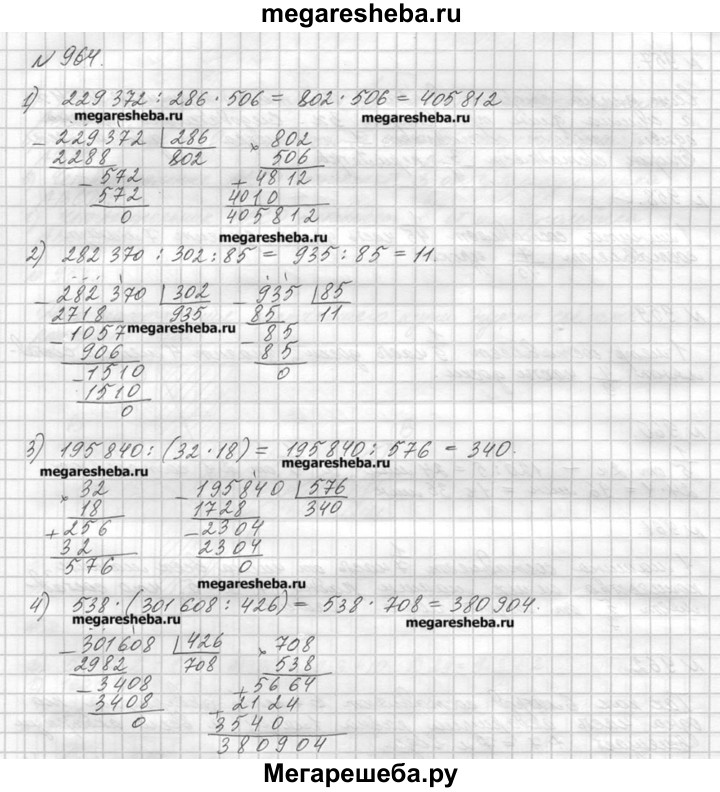 megaresheba.ru
№ 964.
1) 229 372 : 286 · 506 = 802 · 506 = 405 812
megaresheba.ru megaresheba.ru
− 229372 | 286 × 802
2288 802 506
− 572 + 4812
572 4010
0 405812
megaresheba.ru
2) 282 370 : 302 : 85 = 935 : 85 = 11.
− 282 370 | 302 − 935 | 85
2718 935 85 11
− 1057 megaresheba.ru − 85
906 85
− 1510 0
1510
0
3) 195 840 : (32 · 18) = 195 840 : 576 = 340.
megaresheba.ru megaresheba.ru
× 32 − 195840 | 576
18 1728 340
+ 256 − 2304
32 2304
576 0
megaresheba.ru
4) 538 · (301 608 : 426) = 538 · 708 = 380 904.
megaresheba.ru megaresheba.ru
− 301608 | 426 × 708
2982 708 538
− 3408 + 5664
3408 + 2124
0 3540
380904
Мегарешеба.ру